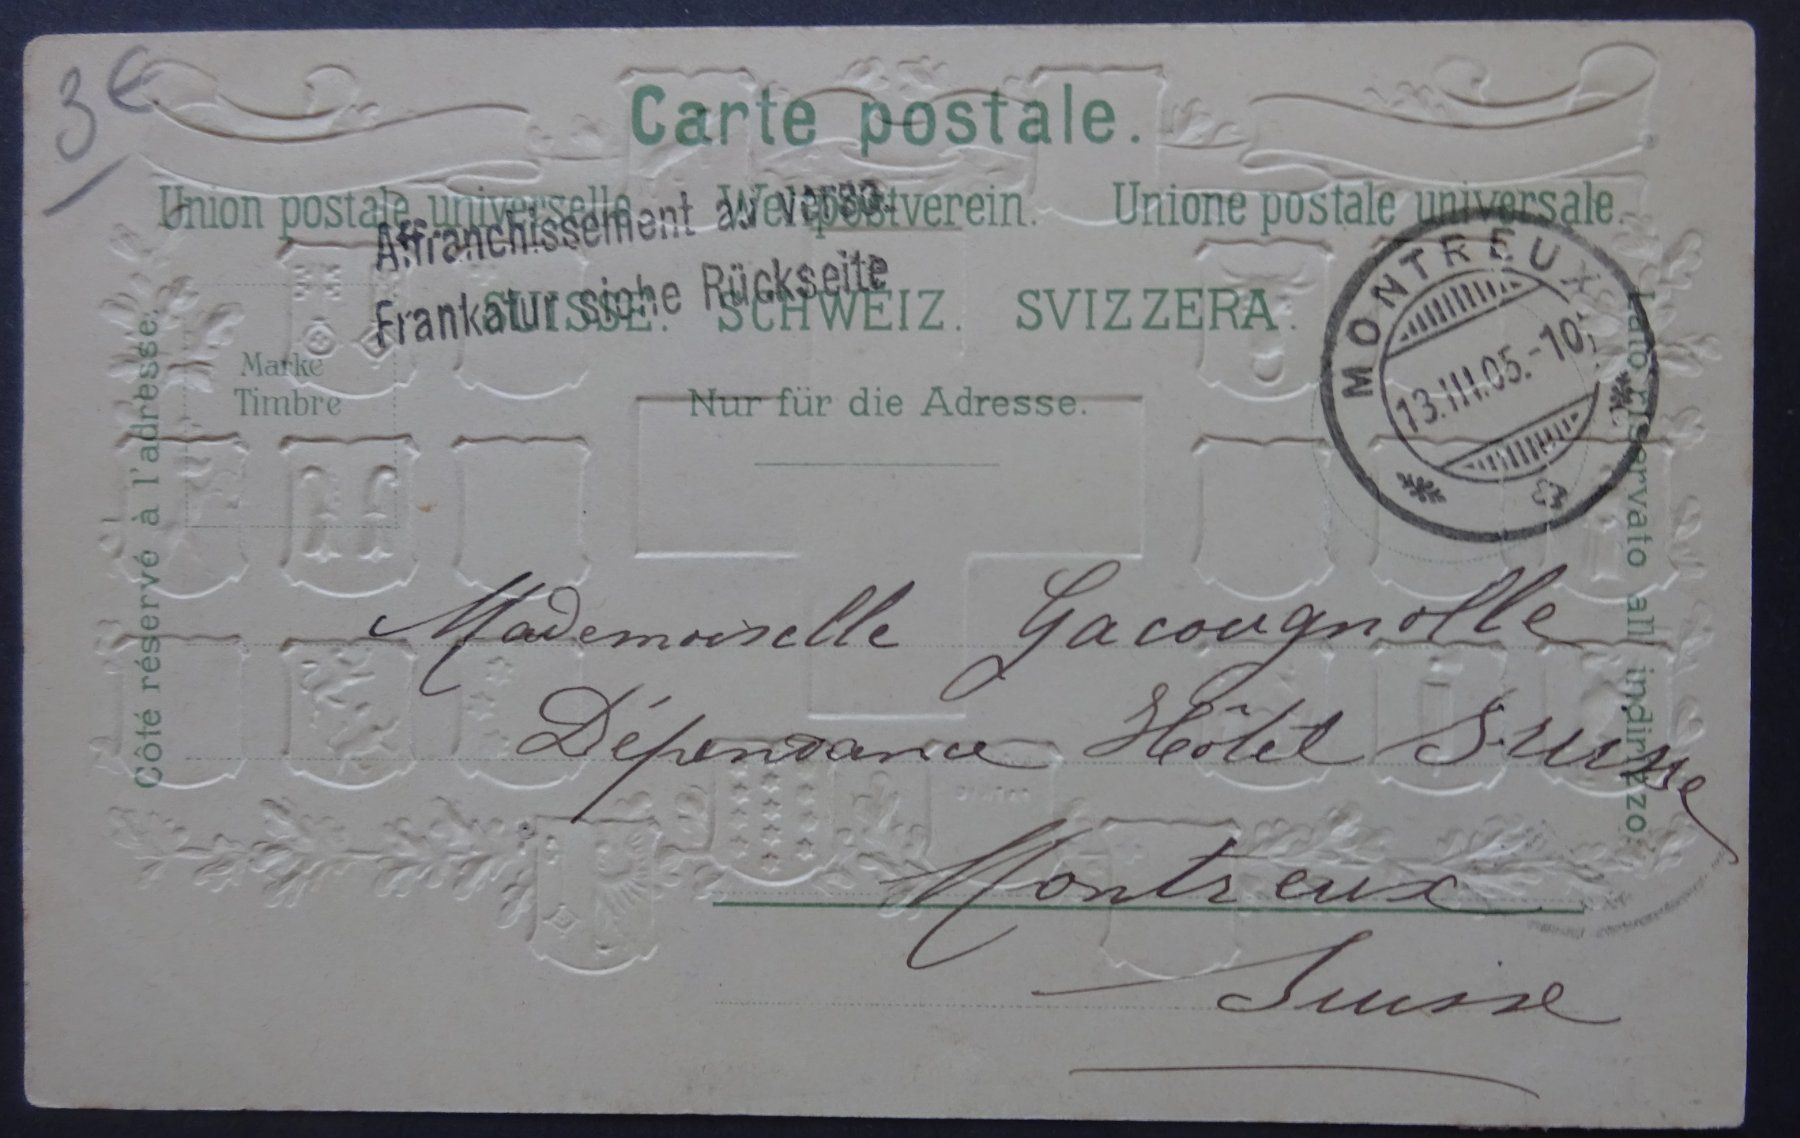 3€
Carte postale.
Union postale universelle. Weltpostverein. Unione postale universale.
Affranchissement au verso.
Frankatur siehe Rückseite
SUISSE. SCHWEIZ. SVIZZERA.
Marke
Timbre
Nur für die Adresse.
Côté réservé à l'adresse.
Lato riservato all indirizzo.
MONTREUX
13.III.05.-10
Mademoiselle Gacougnolle
Dépendance Hôtel Suisse
Montreux
Suisse